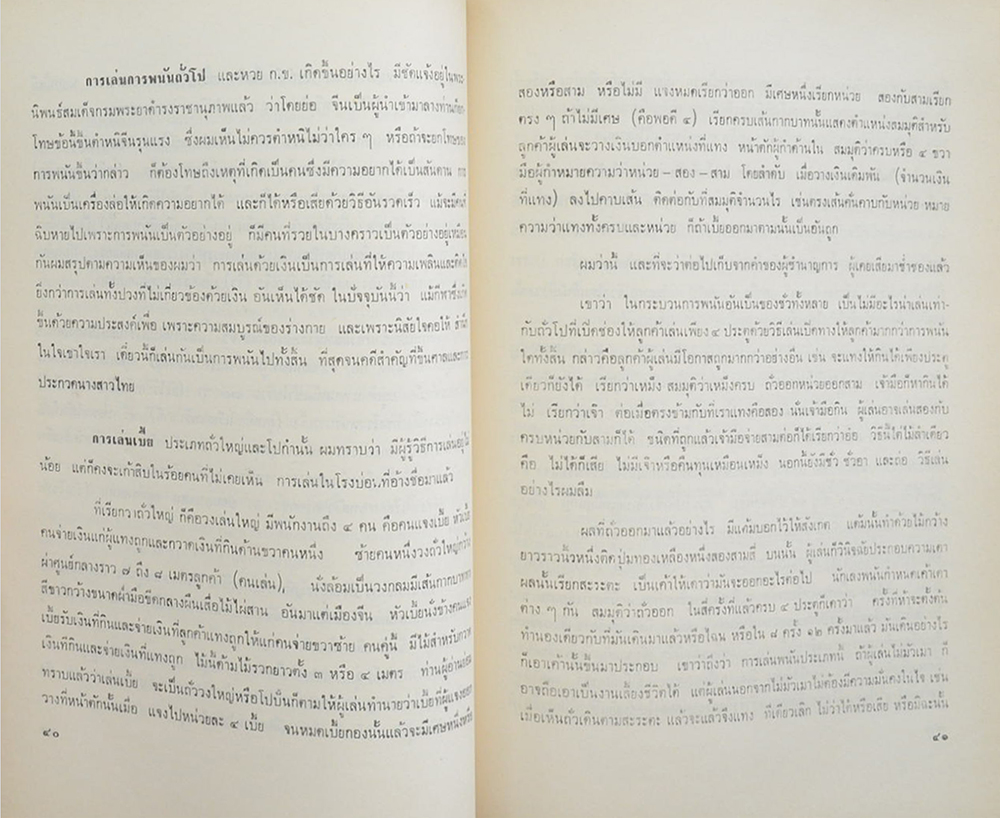 การเล่นการพนันถั่วโป และหวย ก.ข. เกิดขึ้นอย่างไร มีชัดแจ้งอยู่ในพระ
นิพนธ์สมเด็จกรมพระยาดำรงราชานุภาพแล้ว ว่าโดยย่อ จีนเป็นผู้นำเข้ามาลางท่านก็
โทษข้อนี้ขึ้นตำหนิจีนรุนแรง ซึ่งผมเห็นไม่ควรตำหนิไม่ว่าใคร ๆ หรือถ้าจะยกโทษ
การพนันขึ้นว่ากล่าว ก็ต้องโทษถึงเหตุที่เกิดเป็นคนซึ่งมีความอยากได้เป็นสันดาน การ
พนันเป็นเครื่องล่อให้เกิดความอยากได้ และก็ได้หรือเสียด้วยวิธีอันรวดเร็ว แม้จะมีคน
ฉิบหายไปเพราะการพนันเป็นตัวอย่างอยู่ ก็มีคนที่รวยในบางคราวเป็นตัวอย่างอยู่เหมือน
กันผมสรุปตามความเห็นของผมว่า การเล่นด้วยเงินเป็นการเล่นที่ให้ความเพลินและติดใจ
ยิ่งกว่าการเล่นทั้งปวงที่ไม่เกี่ยวข้องด้วยเงิน อันเห็นได้ชัด ในปัจจุบันนี้ว่า แม้กีฬาซึ่งเกิด
ขึ้นด้วยความประสงค์เพื่อ เพราะความสมบูรณ์ของร่างกาย และเพราะนิสัยใจคอให้
ในใจเขาใจเรา เดี๋ยวนี้ก็เล่นกันเป็นการพนันไปทั้งสิ้น ที่สุดจนคดีสำคัญที่ขึ้นศาลและการ
ประกวดนางสาวไทย
การเล่นเบี้ย ประเภทถั่วใหญ่และโปกำนั้น ผมทราบว่า มีผู้รู้วิธีการเล่นอยู่ไม่
น้อย แต่ก็คงจะเก้าสิบในร้อยคนที่ไม่เคยเห็น การเล่นในโรงบ่อนที่อ้างชื่อมาแล้ว
ที่เรียกว่าถั่วใหญ่ ก็คือวงเล่นใหญ่ มีพนักงานถึง ๔ คน คือคนแจงเบี้ย หัวเบี้ย
คนจ่ายเงินแก่ผู้แทงถูกและกวาดเงินที่กินด้านขวาคนหนึ่ง ซ้ายคนหนึ่งวงถั่วใหญ่กว้าง
ผ่าศูนย์กลางราว ๗ ถึง ๘ เมตรลูกค้า (คนเล่น), นั่งล้อมเป็นวงกลมมีเส้นกากบาททา
สีขาวกว้างขนาดฝ่ามือขีดกลางผืนเสื่อไม้ไผ่สาน อันมาแต่เมืองจีน หัวเบี้ยนั่งข้างคนแจง
เบี้ยรับเงินที่กินและจ่ายเงินที่ลูกค้าแทงถูกให้แก่คนจ่ายขวาซ้าย คนคู่นี้ มีไม้สำหรับกวาด
เงินที่กินและจ่ายเงินที่แทงถูก ไม้นี้ด้ามไม้รวกยาวตั้ง ๓ หรือ ๔ เมตร ท่านผู้อ่านย่อม
ทราบแล้วว่าเล่นเบี้ย จะเป็นถั่ววงใหญ่หรือโปปั่นก็ตามให้ผู้เล่นทำนายว่าเบี้ยที่ผู้แจงยอก
วางที่หน้าตักนั้นเมื่อ แจงไปหน่วยละ ๔ เบี้ย จนหมดเบี้ยกองนั้นแล้วจะมีเศษหนึ่งหรือ
๔๐
สองหรือสาม หรือไม่มี แจงหมดเรียกว่าออก มีเศษหนึ่งเรียกหน่วย สองกับสามเรียก
ตรง ๆ ถ้าไม่มีเศษ (คือพอดี ๔) เรียกครบเส้นกากบาทนั้นแสดงตำแหน่งสมมุติสำหรับ
ลูกค้าผู้เล่นจะวางเงินบอกตำแหน่งที่แทง หน้าตักผู้กำด้านใน สมมุติว่าครบหรือ ๔ ขวา
มือผู้กำหมายความว่าหน่วย – สอง – สาม โดยลำดับ เมื่อวางเงินเดิมพัน (จำนวนเงิน
ที่แทง) ลงไปคาบเส้น ติดต่อกับที่สมมุติจำนวนไร เช่นตรงเส้นคั่นคาบกับหน่วย หมาย
ความว่าแทงทั้งครบและหน่วย ก็ถ้าเบี้ยออกมาตามนั้นเป็นอันถูก
ผมว่านี้ และที่จะว่าต่อไปเก็บจากคำของผู้ชำนาญการ ผู้เคยเสียมาช่ำชองแล้ว
เขาว่า ในกระบวนการพนันอันเป็นของชั่วทั้งหลาย เป็นไม่มีอะไรน่าเล่นเท่า-
กับถั่วโปที่เปิดช่องให้ลูกค้าเล่นเพียง ๔ ประตูด้วยวิธีเล่นเบ็ดทางให้ลูกค้ามากกว่าการพนัน
ใดทั้งสิ้น กล่าวคือลูกค้าผู้เล่นมีโอกาสถูกมากกว่าอย่างอื่น เช่น จะแทงให้กินได้เพียงประตู
เดียวก็ยังได้ เรียกว่าเหม็ง สมมุติว่าเหม็งครบ ถั่วออกหน่วยออกสาม เจ้ามือก็หากินได้
ไม่ เรียกว่าเจ๊า ต่อเมื่อตรงข้ามกับที่เราแทงคือสอง นั่นเจ้ามือกิน ผู้เล่นอาจเล่นสองกับ
ครบหน่วยกับสามก็ได้ ชนิดที่ถูกแล้วเจ้ามือจ่ายสามต่อก็ได้เรียกว่าอ๋อ วิธีนี้ใต้ไม้ลำเดียว
คือ ไม่ได้ก็เสีย ไม่มีเจ๊าหรือคืนทุนเหมือนเหม็ง นอกนี้ยังมีชั่ว ชั่วอา และถ่อ วิธีเล่น
อย่างไรผมลืม
ผลที่ถั่วออกมาแล้วอย่างไร มีแต้มบอกไว้ให้สังเกต แต้มนั้นทำด้วยไม้กว้าง
ยาวราวนิ้วหนึ่งติดปุ่มทองเหลืองหนึ่งสองสามสี่ บนนั้น ผู้เล่นก็วินิจฉัยประกอบความเดา
ผลนั้นเรียกสะระตะ เป็นเค้าให้เดาว่ามันจะออกอะไรต่อไป นักเลงพนันกำหนดเค้าเดา
ต่าง ๆ กัน สมมุติว่าถั่วออก ในสี่ครั้งที่แล้วครบ ๔ ประตูก็เดาว่า ครั้งที่ห้าจะตั้งต้น
ทำนองเดียวกับที่มันเดินมาแล้วหรือไฉน หรือใน ๘ ครั้ง ๑๒ ครั้งมาแล้ว มันเดินอย่างไร
ก็เอาเค้านั้นขึ้นมาประกอบ เขาว่าถึงว่า การเล่นพนันประเภทนี้ ถ้าผู้เล่นไม่มัวเมา ก็
อาจถือเอาเป็นงานเลี้ยงชีวิตได้ แต่ผู้เล่นนอกจากไม่มัวเมาไม่ต้องมีความมั่นคงในใจ เช่น
เมื่อเห็นถั่วเดินตามสะระตะ แล้วจะแล้วจึงแทง ทีเดียวเลิก ไม่ว่าได้หรือเสีย หรือมิฉะนั้น
๔๑